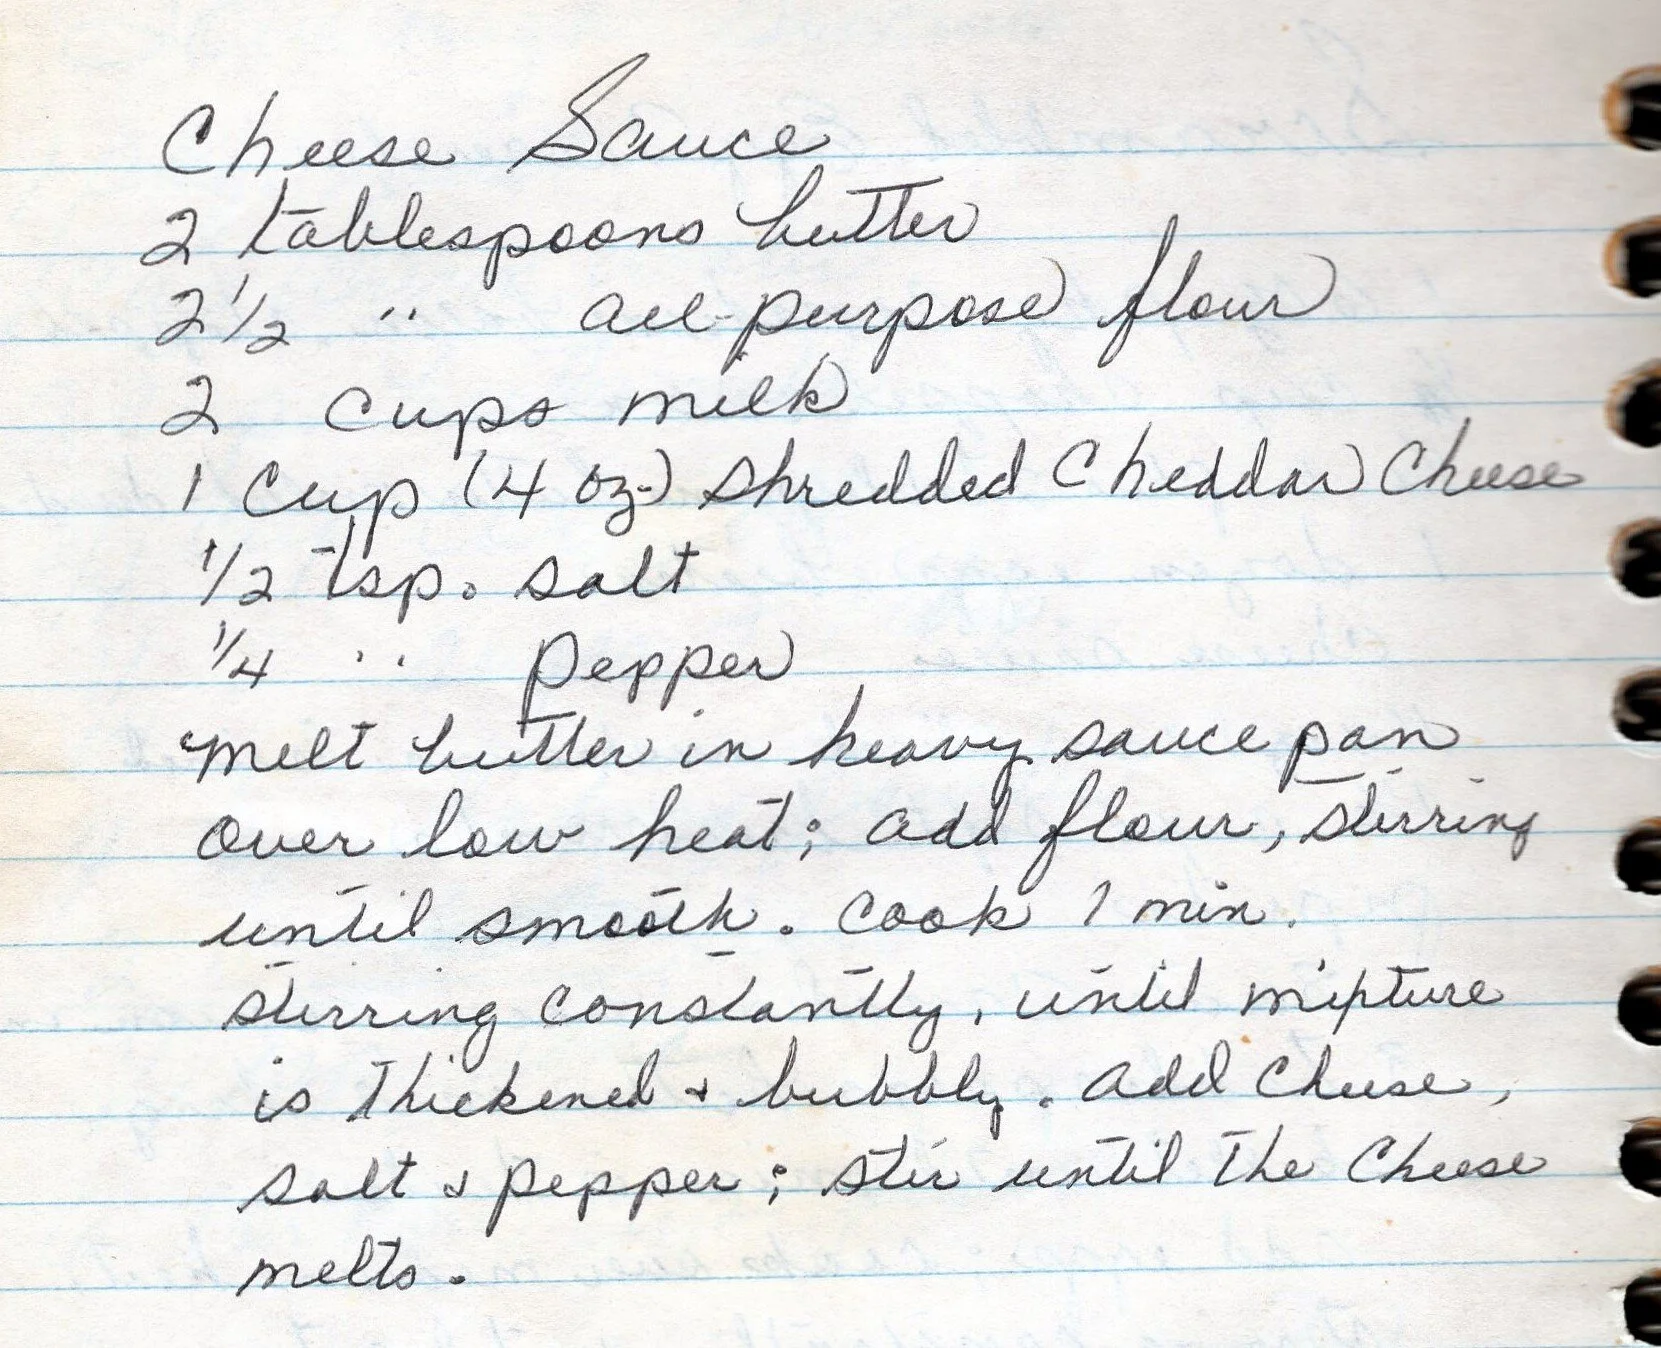 Cheese Sauce
2 tablespoons butter
2 1/2 " all-purpose flour
2 cups milk
1 cup (4 oz.) shredded Cheddar Cheese
1/2 tsp. salt
1/4 " pepper
melt butter in heavy sauce pan
over low heat; add flour, stirring
until smooth. Cook 1 min.
stirring constantly, until mixture
is thickened & bubbly. add cheese,
salt & pepper; stir until the Cheese
melts.